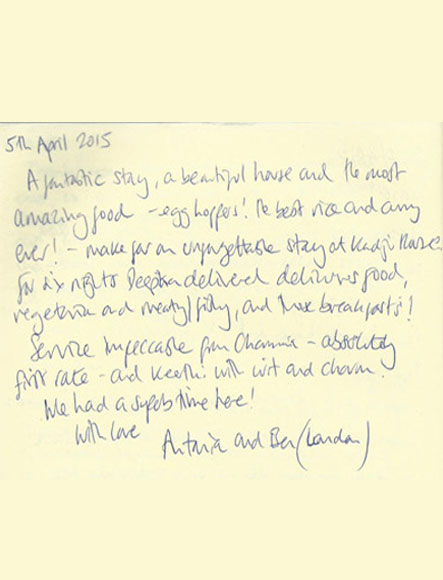 5th April 2015
A fantastic stay, a beautiful house and the most
amazing food - egg hoppers! The best rice and curry
ever! - make for an unforgettable stay at Kadju House.
For six nights Deepthi delivered delicious food,
vegetarian and meaty/fishy, and those breakfasts!
Service impeccable from Chammia - absolutely
first rate - and Keethi with wit and charm!
We had a superb time here!
With love
Antonia and Ben (London)